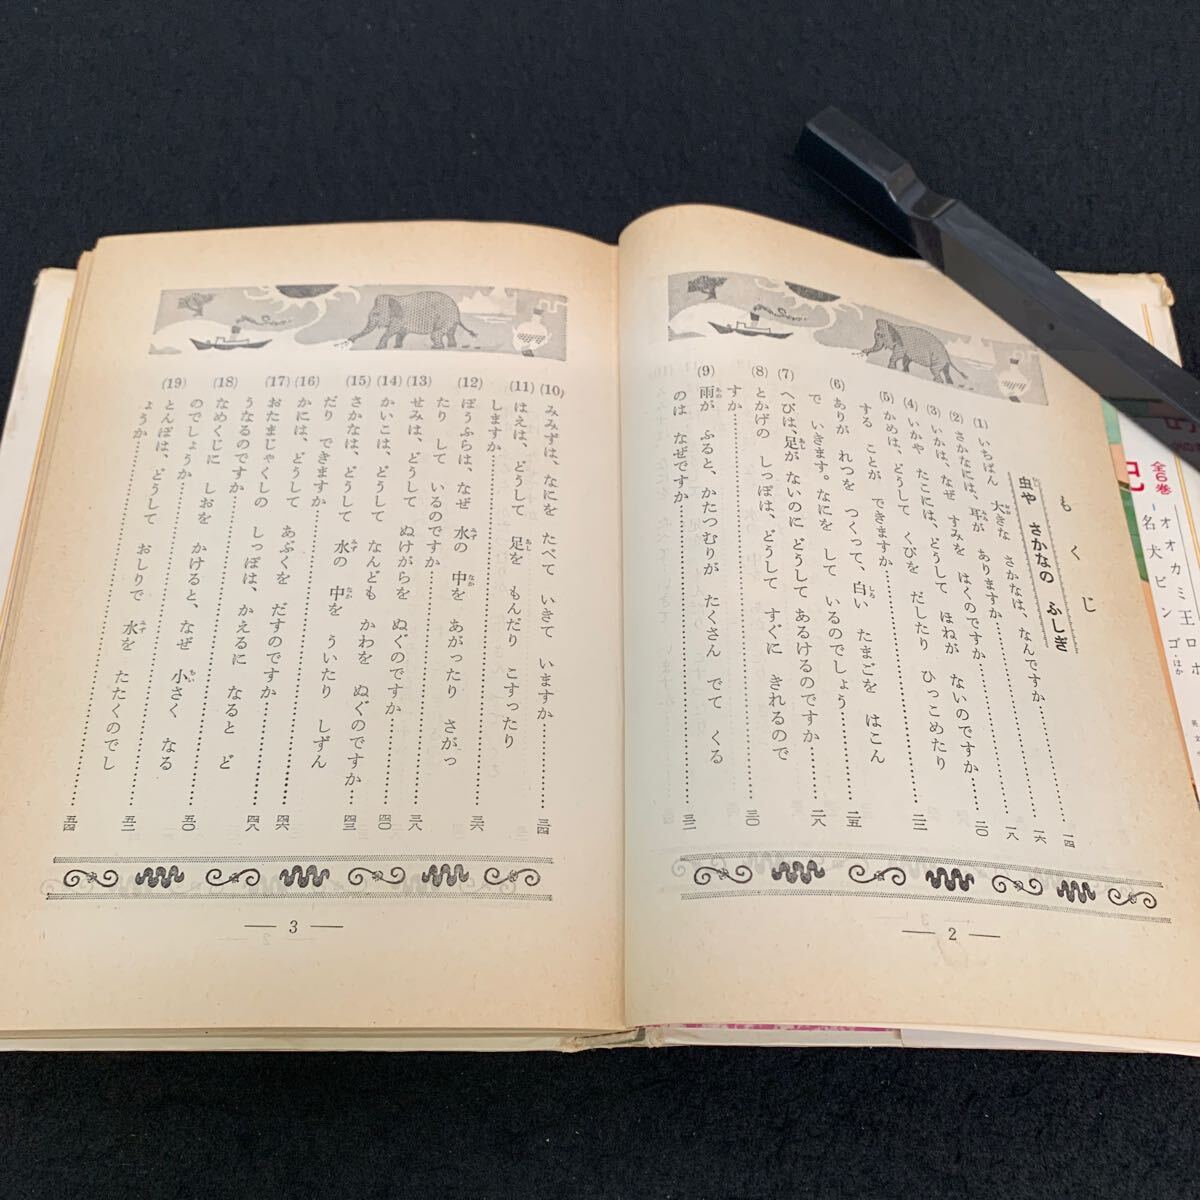 もくじ
虫や さかなの ふしぎ
(1) いちばん 大きな さかなは、なんですか…………一四
(2) さかなには、耳が ありますか…………一六
(3) いかは、なぜ すみを はくのですか…………一八
(4) いかや たこには、どうして ほねが ないのですか…………二〇
(5) かめは、どうして くびを だしたり ひっこめたり
する ことが できますか…………二二
(6) ありが れつを つくって、白い たまごを はこん
で いきます。なにを して いるのでしょう…………二五
(7) へびは、足が ないのに どうして あるけるのですか…………二八
(8) とかげの しっぽは、どうして すぐに きれるので
すか…………三〇
(9) 雨が ふると、かたつむりが たくさん でて くる
のは なぜですか…………三二
― 2 ―
(10) みみずは、なにを たべて いきて いますか…………三四
(11) はえは、どうして 足を もんだり こすったり
しますか…………
(12) ぼうふらは、なぜ 水の 中を あがったり さがっ
たり して いるのですか…………三六
(13) せみは、どうして ぬけがらを ぬぐのですか…………三八
(14) かいこは、どうして なんども かわを ぬぐのですか…………四〇
(15) さかなは、どうして 水の 中を ういたり しずん
だり できますか…………四三
(16) かには、どうして あぶくを だすのですか…………四六
(17) おたまじゃくしの しっぽは、かえるに なると ど
うなるのですか…………四八
(18) なめくじに しおを かけると、なぜ 小さく なる
のでしょうか…………五〇
(19) とんぼは、どうして おしりで 水を たたくのでし
ょうか…………
― 3 ―
全6巻
オオカミ王ロボ
名犬ビンゴ ほか